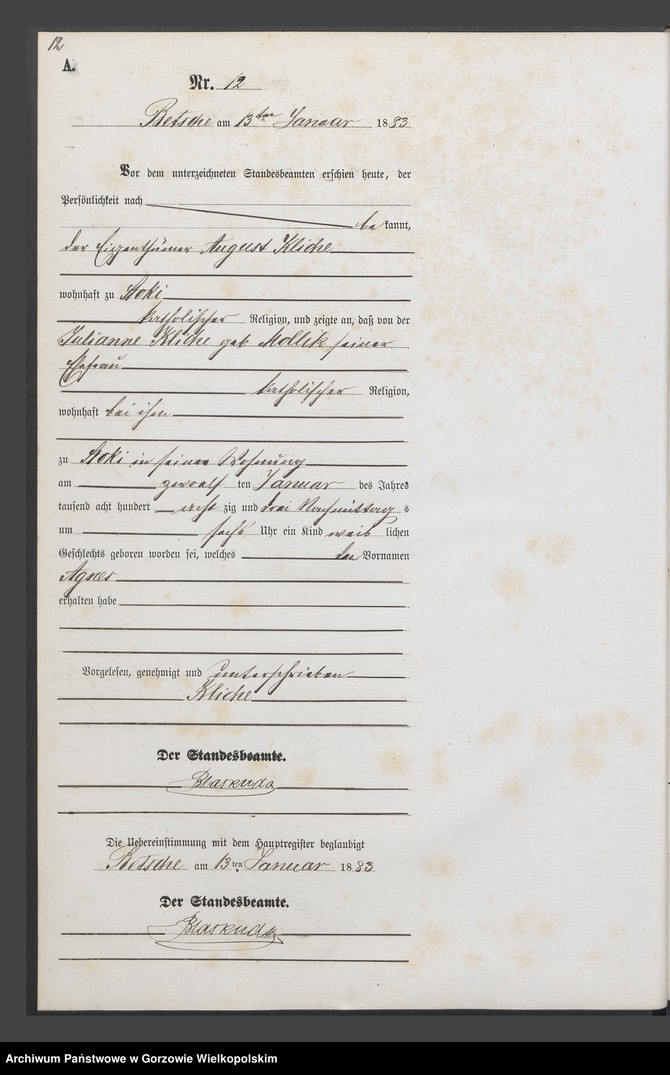 12
A.
Nr. 12
Betsche am 13ten Januar 1883
Vor dem unterzeichneten Standesbeamten erschien heute, der
Persönlichkeit nach
be kannt,
der Eigenthümer August Kliche
wohnhaft zu Stoki
katholischer Religion, und zeigte an, daß von der
Julianne Kliche geb Mollik seiner
Ehefrau
katholischer Religion,
wohnhaft bei ihm
zu Stoki in seiner Wohnung
am zwoelf ten Januar des Jahres
tausend acht hundert acht zig und drei Nachmittag s
um sechs Uhr ein Kind weib lichen
Geschlechts geboren worden sei, welches den Vornamen
Agnes
erhalten habe
Vorgelesen, genehmigt und unterschrieben
Kliche
Der Standesbeamte.
Blaskuda
Die Uebereinstimmung mit dem Hauptregister beglaubigt
Betsche am 13ten Januar 1883
Der Standesbeamte.
Blaskuda
Archiwum Państwowe w Gorzowie Wielkopolskim